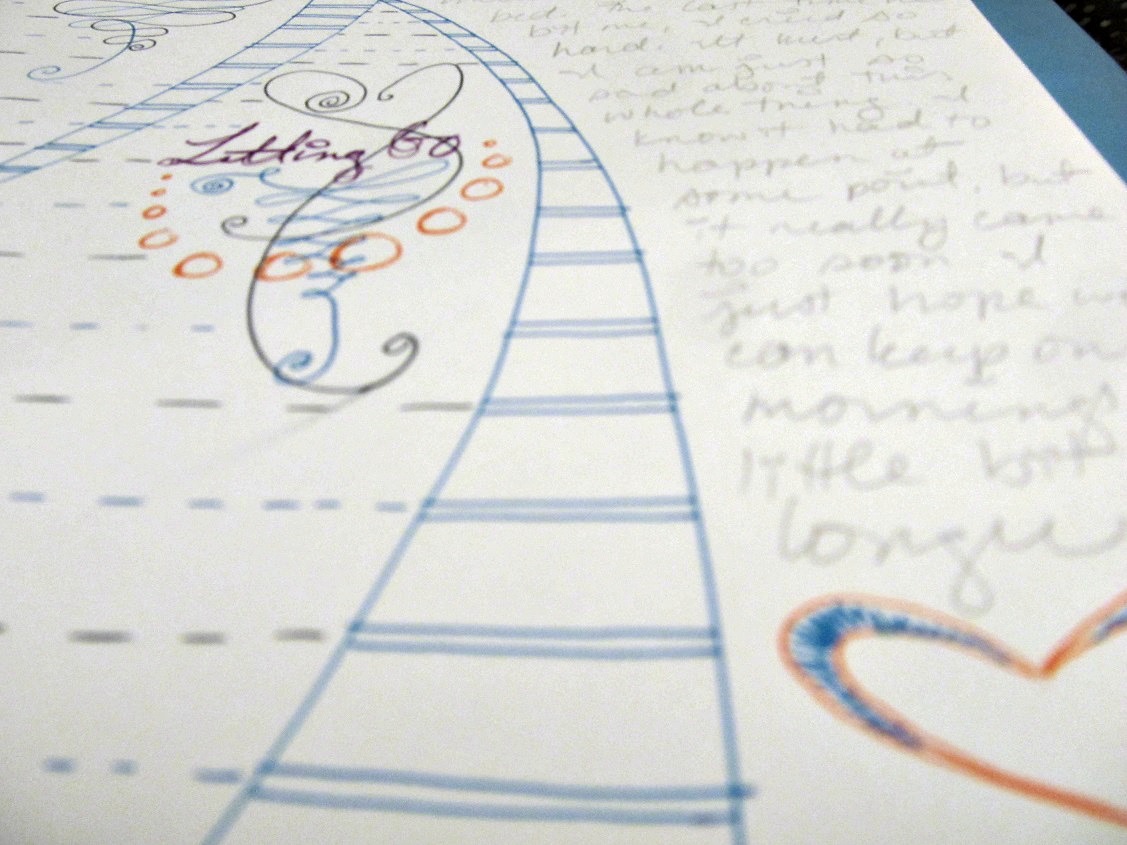 Letting Go
bed, the last time he
bit me, I cried so
hard. It hurt, but
I am just so
sad about this
whole thing. I
know it had to
happen at
some point, but
it really came
too soon. I
just hope we
can keep on
mornings
little bit
longer